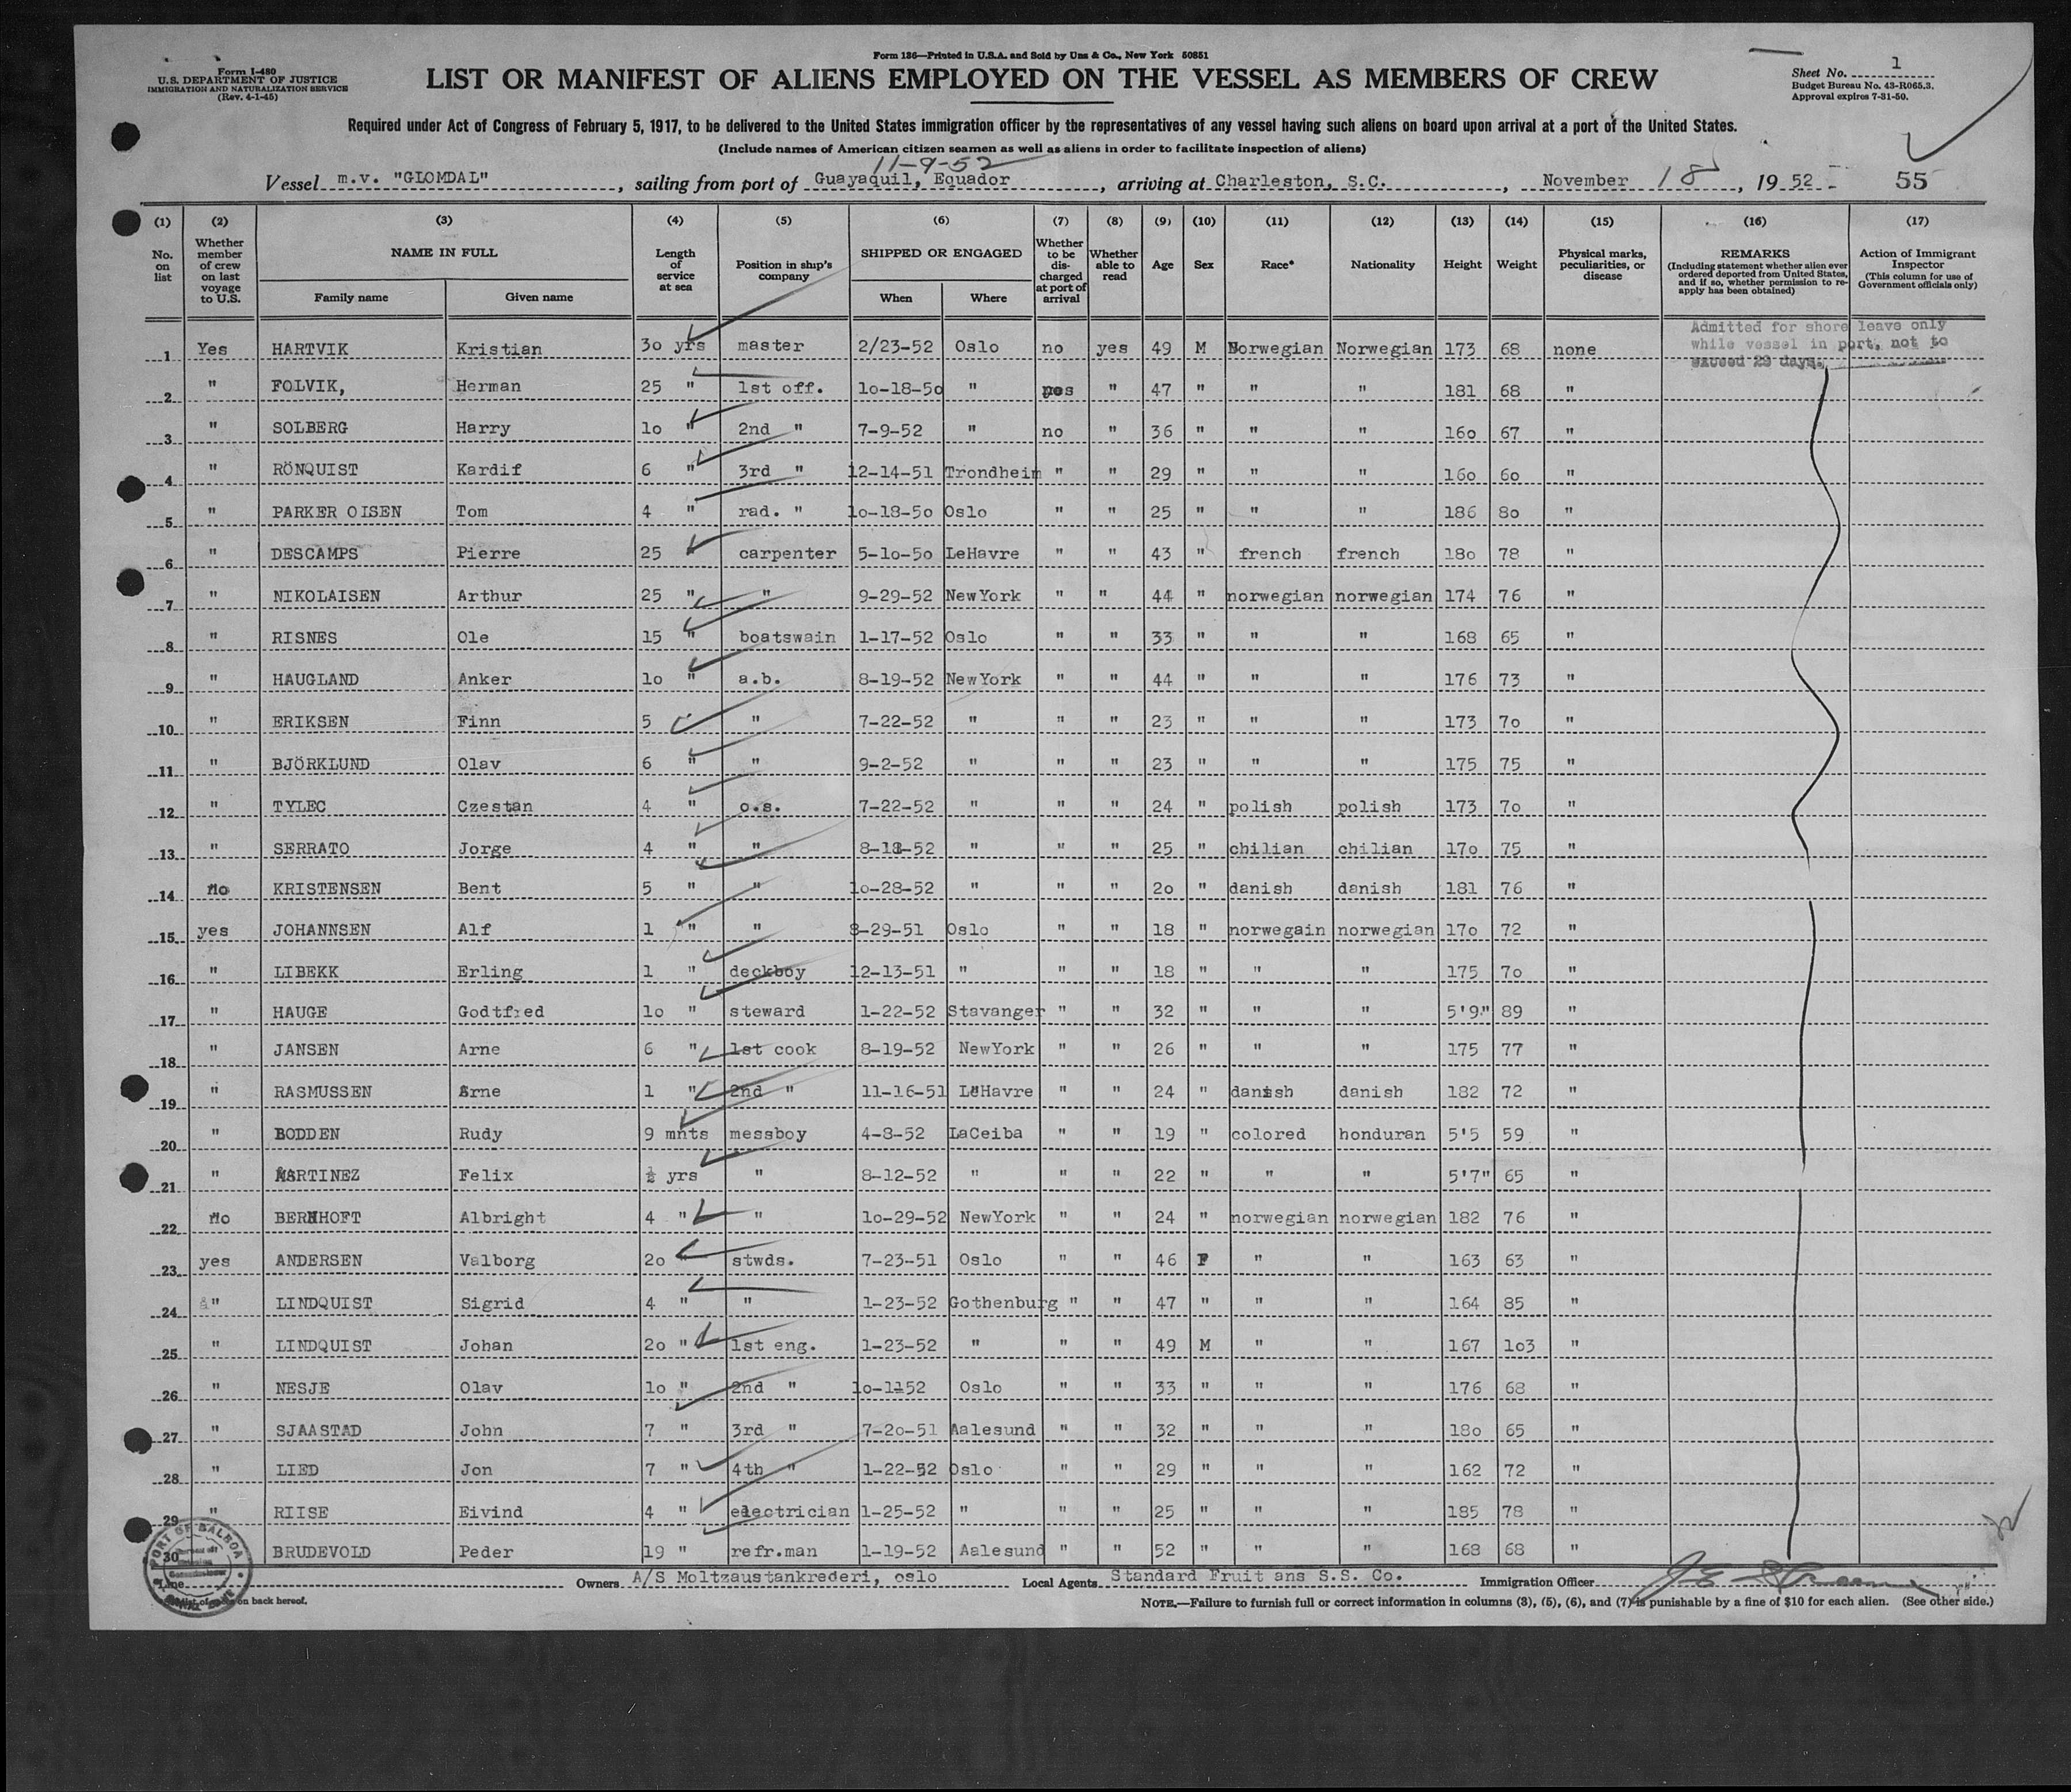 Form 136—Printed in U.S.A. and Sold by Unz & Co., New York 50851
Form I-480
U.S. DEPARTMENT OF JUSTICE
IMMIGRATION AND NATURALIZATION SERVICE
(Rev. 4-1-45)
LIST OR MANIFEST OF ALIENS EMPLOYED ON THE VESSEL AS MEMBERS OF CREW
Sheet No. 1
Budget Bureau No. 43-R065.3.
Approval expires 7-31-50.
Required under Act of Congress of February 5, 1917, to be delivered to the United States immigration officer by the representatives of any vessel having such aliens on board upon arrival at a port of the United States.
(Include names of American citizen seamen as well as aliens in order to facilitate inspection of aliens)
11-9-52
Vessel m.v. "GLOMDAL", sailing from port of Guayaquil, Equador, arriving at Charleston, S.C., November 18, 1952 55
(1) (2) (3) (4) (5) (6) (7) (8) (9) (10) (11) (12) (13) (14) (15) (16) (17)
No. on list
Whether member of crew on last voyage to U.S.
NAME IN FULL
Family name Given name
Length of service at sea
Position in ship's company
SHIPPED OR ENGAGED
When Where
Whether to be discharged at port of arrival
Whether able to read
Age
Sex
Race*
Nationality
Height
Weight
Physical marks, peculiarities, or disease
REMARKS
(Including statement whether alien ever ordered deported from United States, and if so, whether permission to reapply has been obtained)
Action of Immigrant Inspector
(This column for use of Government officials only)
Admitted for shore leave only
while vessel in port, not to
exceed 29 days.
1 Yes HARTVIK Kristian 30 yrs master 2/23-52 Oslo no yes 49 M Norwegian Norwegian 173 68 none
2 " FOLVIK, Herman 25 " 1st off. 10-18-50 " " 47 " " " 181 68 "
3 " SOLBERG Harry 10 " 2nd " 7-9-52 " no " 36 " " " 160 67 "
4 " RÖNQUIST Kardif 6 " 3rd " 12-14-51 Trondheim " " 29 " " " 160 60 "
5 " PARKER OISEN Tom 4 " rad. " 10-18-50 Oslo " " 25 " " " 186 80 "
6 " DESCAMPS Pierre 25 " carpenter 5-10-50 LeHavre " " 43 " french french 180 78 "
7 " NIKOLAISEN Arthur 25 " " 9-29-52 NewYork " " 44 " norwegian norwegian 174 76 "
8 " RISNES Ole 15 " boatswain 1-17-52 Oslo " " 33 " " " 168 65 "
9 " HAUGLAND Anker 10 " a.b. 8-19-52 NewYork " " 44 " " " 176 73 "
10 " ERIKSEN Finn 5 " 7-22-52 " " " 23 " " " 173 70 "
11 " BJÖRKLUND Olav 6 " " 9-2-52 " " " 23 " " " 175 75 "
12 " TYLEC Czestan 4 " o.s. 7-22-52 " " " 24 " polish polish 173 70 "
13 " SERRATO Jorge 4 " " 8-18-52 " " " 25 " chilian chilian 170 75 "
14 no KRISTENSEN Bent 5 " " 10-28-52 " " " 20 " danish danish 181 76 "
15 yes JOHANNSEN Alf 1 " " 8-29-51 Oslo " " 18 " norwegain norwegian 170 72 "
16 " LIBEKK Erling 1 " deckboy 12-13-51 " " " 18 " " " 175 70 "
17 " HAUGE Godtfred 10 " steward 1-22-52 Stavanger " " 32 " " " 5'9" 89 "
18 " JANSEN Arne 6 " 1st cook 8-19-52 NewYork " " 26 " " " 175 77 "
19 " RASMUSSEN Arne 1 " 2nd " 11-16-51 LeHavre " " 24 " danish danish 182 72 "
20 " BODDEN Rudy 9 mnts messboy 4-8-52 LaCeiba " " 19 " colored honduran 5'5 59 "
21 " MARTINEZ Felix ½ yrs " 8-12-52 " " " 22 " " " 5'7" 65 "
22 no BERNHOFT Albright 4 " " 10-29-52 NewYork " " 24 " norwegian norwegian 182 76 "
23 yes ANDERSEN Valborg 20 " stwds. 7-23-51 Oslo " " 46 F " " 163 63 "
24 " LINDQUIST Sigrid 4 " " 1-23-52 Gothenburg " " 47 " " " 164 85 "
25 " LINDQUIST Johan 20 " 1st eng. 1-23-52 " " " 49 M " " 167 103 "
26 " NESJE Olav 10 " 2nd " 10-1152 Oslo " " 33 " " " 176 68 "
27 " SJAASTAD John 7 " 3rd " 7-20-51 Aalesund " " 32 " " " 180 65 "
28 " LIED Jon 7 " 4th " 1-22-52 Oslo " " 29 " " " 162 72 "
29 " RIISE Eivind 4 " electrician 1-25-52 " " " 25 " " " 185 78 "
30 BRUDEVOLD Peder 19 " refr.man 1-19-52 Aalesund " " 52 " " " 168 68 "
PORT OF BALBOA
Line Owners A/S Moltzaustankrederi, oslo Local Agents Standard Fruit ans S.S. Co. Immigration Officer
on back hereof.
NOTE.—Failure to furnish full or correct information in columns (3), (5), (6), and (7) is punishable by a fine of $10 for each alien. (See other side.)